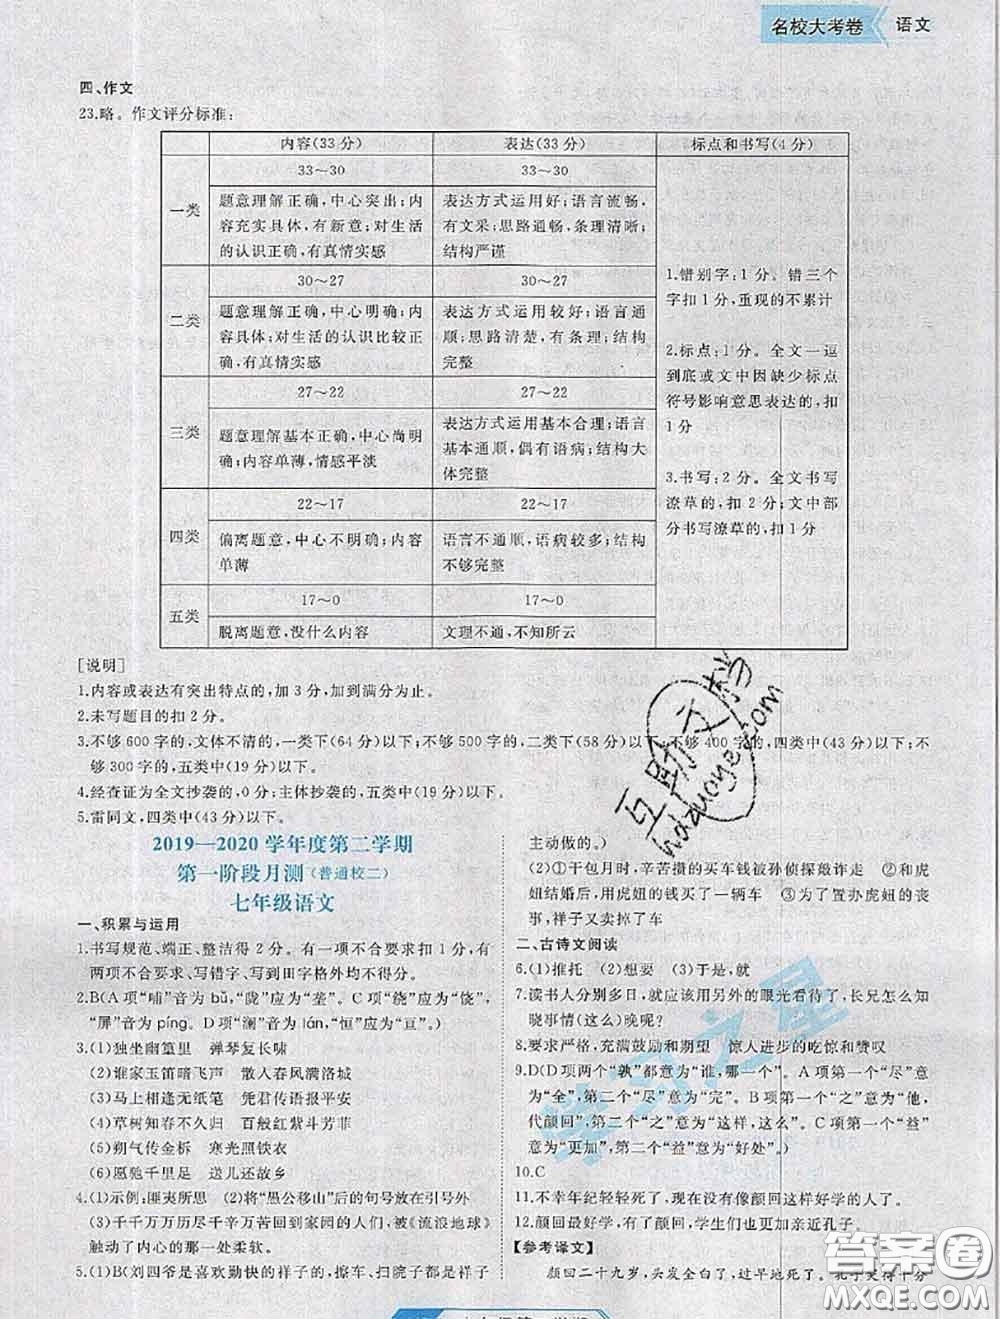 名校大考卷 语文
四、作文
23.略。作文评分标准：
内容(33 分) 表达(33 分) 标点和书写(4 分)
一类
33～30 33～30
题意理解正确,中心突出;内
容充实具体,有新意;对生活
的认识正确,有真情实感
表达方式运用好;语言流畅,
有文采;思路通畅,条理清晰;
结构严谨
二类
30～27 30～27
题意理解正确,中心明确;内
容具体;对生活的认识比较正
确,有真情实感
表达方式运用较好;语言通
顺;思路清楚,有条理;结构
完整
三类
27～22 27～22
题意理解基本正确,中心尚明
确;内容单薄,情感平淡
表达方式运用基本合理;语言
基本通顺,偶有语病;结构大
体完整
四类
22～17 22～17
偏离题意,中心不明确;内容
单薄
语言不通顺,语病较多;结构
不够完整
五类
17～0 17～0
脱离题意,没什么内容
文理不通,不知所云
1.错别字:1 分。错三个
字扣 1 分,重现的不累计
2.标点:1 分。全文一逗
到底或文中因缺少标点
符号影响意思表达的,扣
1 分
3.书写:2 分。全文书写
潦草的,扣 2 分;文中部
分书写潦草的,扣 1 分
[说明]
1.内容或表达有突出特点的,加 3 分,加到满分为止。
2.未写题目的扣 2 分。
3.不够 600 字的,文体不清的,一类下(64 分)以下;不够 500 字的,二类下(58 分)以下;不够 400 字的,四类中(43 分)以下;不
够 300 字的,五类中(19 分)以下。
4.经查证为全文抄袭的,0 分;主体抄袭的,五类中(19 分)以下。
5.雷同文,四类中(43 分)以下。
2019—2020 学年度第二学期
第一阶段月测(普通校二)
七年级语文
一、积累与运用
1.书写规范、端正、整洁得 2 分。有一项不合要求扣 1 分,有
两项不合要求、写错字、写到田字格外均不得分。
2.B(A 项“哺”音为 bǔ,“陇”应为“垄”。C 项“绕”应为“饶”,
“屏”音为 píng。D 项“澜”音为 lán,“恒”应为“亘”。)
3.(1)独坐幽篁里 弹琴复长啸
(2)谁家玉笛暗飞声 散入春风满洛城
(3)马上相逢无纸笔 凭君传语报平安
(4)草树知春不久归 百般红紫斗芳菲
(5)朔气传金柝 寒光照铁衣
(6)愿驰千里足 送儿还故乡
4.(1)示例:匪夷所思 (2)将“愚公移山”后的句号放在引号外
(3)千千万万历尽千辛万苦回到家园的人们,被《流浪地球》
触动了内心的那一处柔软。
5.(1)B(刘四爷是喜欢勤快的样子的,擦车、扫院子都是祥子
主动做的。)
(2)①干包月时,辛苦攒的买车钱被孙侦探敲诈走 ②和虎
妞结婚后,用虎妞的钱买了一辆车 ③为了置办虎妞的丧
事,祥子又卖掉了车
二、古诗文阅读
6.(1)推托 (2)想要 (3)于是,就
7.读书人分别多日,就应该用另外的眼光看待了,长兄怎么知
晓事情(这么)晚呢?
8.要求严格,充满鼓励和期望 惊人进步的吃惊和赞叹
9.D(D 项两个“孰”都意为“谁,哪一个”。A 项第一个“尽”意
为“全”,第二个“尽”意为“完”。B 项第一个“之”意为“他,
代颜回”,第二个“之”意为“的”。C 项第一个“益”
意为“更加”,第二个“益”意为“好处”。)
10.C
11.不幸年纪轻轻死了,现在没有像颜回这样好学的人了。
12.颜回最好学,有了颜回,学生们也更加亲近孔子。
【参考译文】
颜回二十九岁,头发全白了,过早地死了。孔子哭得十分
互助文档
hdzuoye.com
学习之星
答案圈
MXQE.COM